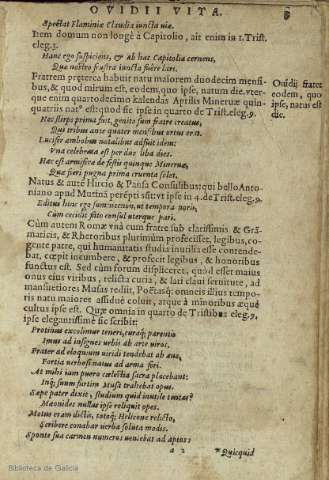 OVIDII VITA.
Spectat Flaminiæ Claudia iuncta viæ.
Item domum non longè à Capitolio, ait enim in 1. Trist.
eleg. 3.
Hanc ego suspiciens, & ab hac Capitolia cernens,
Quæ nostro frustra iuncta fuêre lari.
Fratrem præterea habuit natu maiorem duodecim mensi-
bus, & quod mirum est, eodem, quo ipse, natum die. vter-
que enim quartodecimo kalendas Aprilis Mineruæ quin-
quatriis natꝰ est: quod sic ipse in quarto de Trist. eleg. 9.
Ouidij frater
eodem, quo
ipse, natus est
die.
Nec stirps prima fui, genito sum fratre creatus,
Qui tribus ante quater mensibus ortus erat.
Lucifer ambobus natalibus adfuit idem:
Vna celebrata est per duo liba dies.
Hæc est armiferæ de festis quinque Mineruæ,
Quæ fieri pugna prima cruenta solet.
Natus & autē Hircio & Pansa Consulibus: qui bello Anto-
niano apud Mutinā perēpti sūt: vt ipse in 4. de Trist. eleg. 9.
Editus hinc ego sum: necnon, vt tempora noris,
Cùm cecidit fato consul vterque pari.
Cùm autem Romæ vnà cum fratre sub clarissimis & Grā-
maticis, & Rhetoribus plurimum profecisset, legibus, co-
gente patre, qui humanitatis studia inutilia esse contende-
bat, cœpit incumbere, & profecit legibus, & honoribus
functus est. Sed cùm forum displiceret, quòd esset maius
onus eius viribus, relicta curia, & laui claui seruitute, ad
mansuetiores Musas rediit, Poëtasq; omneis illius tempo-
ris natu maiores assiduè coluit, atque à minoribus æquè
cultus ipse est. Quæ omnia in quarto de Tristibus eleg. 9,
ipse elegantissimè sic scribit:
Protinus excolimur teneri, curaq; parentis
Imus ad insignes vrbis ab arte viros.
Frater ad eloquium viridi tendebat ab æuo,
Fortia verbosi natus ad arma fori.
At mihi iam puero cœlestia sacra placebant:
Inq; suum furtim Musa trahebat opus.
Sæpe pater dixit, studium quid inutile tentas?
Mæonides nullas ipse reliquit opes.
Motus eram dictis, totoq; Helicone relicto,
Scribere conabar verba soluta modis.
Sponte sua carmen numeros veniebat ad aptos:
a 2
Quicquid
Biblioteca de Galicia